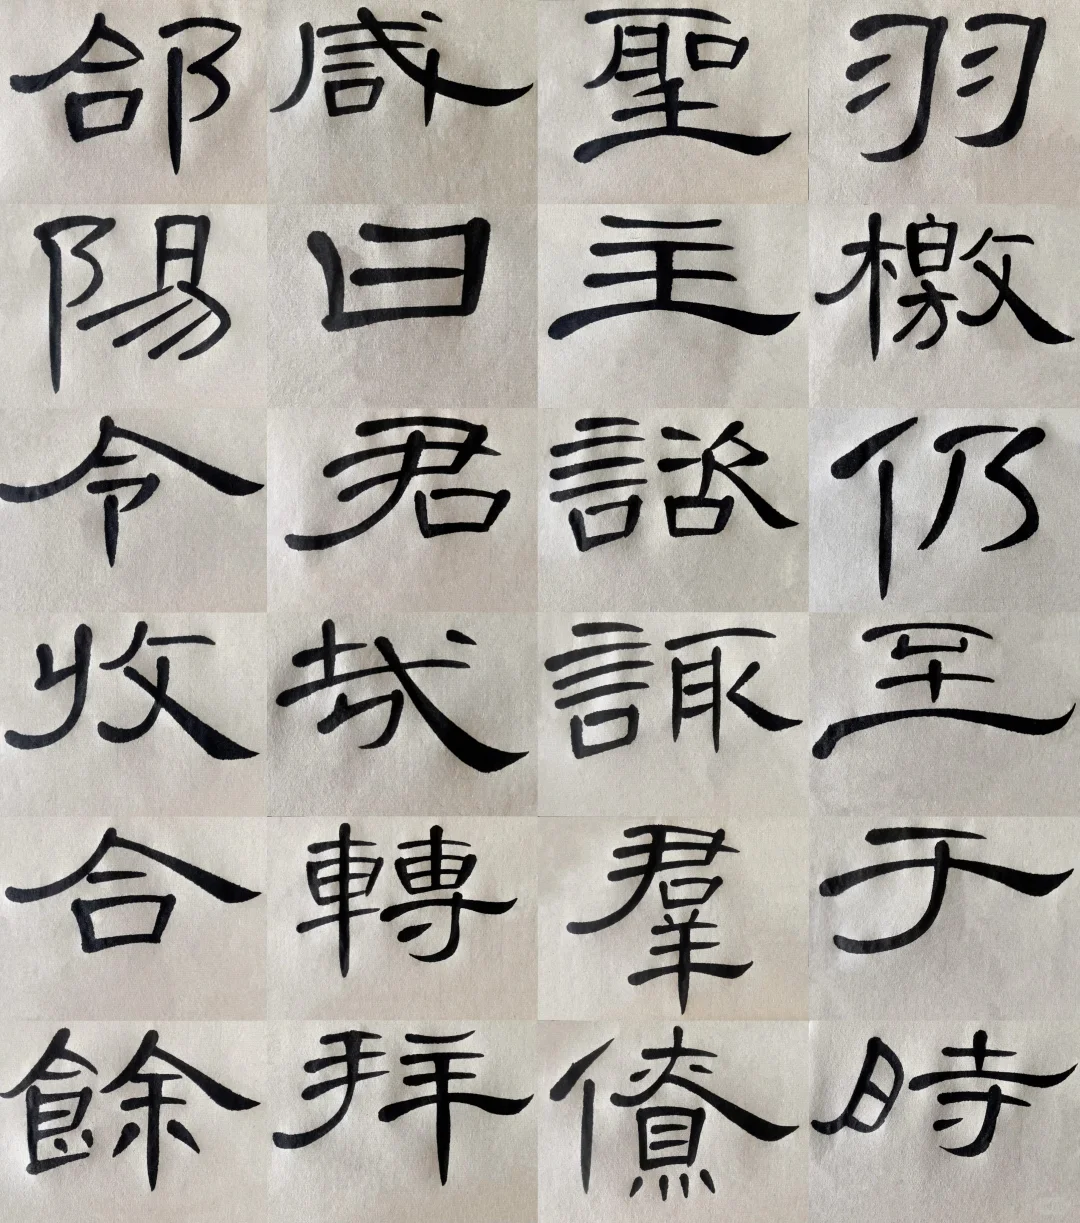 羽檄仍至于時
聖主諮諏羣僚
咸曰君哉轉拜
郃陽令收合餘